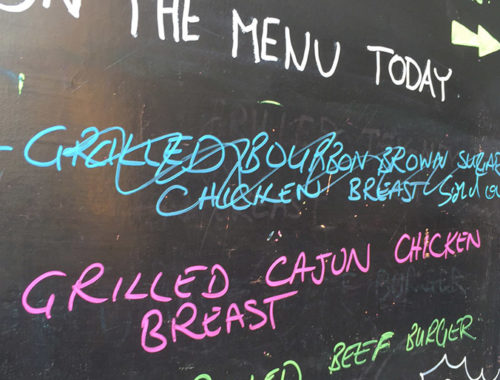 ON THE MENU TODAY
- GRILLED BOURBON BROWN SUGAR
CHICKEN BREAST Sold ou
GRILLED CAJUN CHICKEN
BREAST
BEEF BURGER